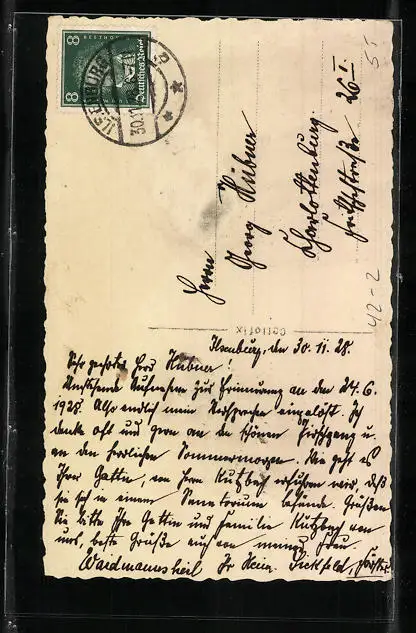 8 BEETHOVEN 8
Deutsches Reich
ILSENBURG
30.11
Herrn
Georg Hübner
Charlottenburg
Fritschestraße 26 I.
51
42-2
Cellofix
Ilsenburg, den 30.11.28.
Sehr geehrter Herr Hübner!
Umstehende Aufnahme zur Erinnerung an den 24.6.
1928. Also endlich mein Versprechen eingelöst. Ich
denke oft und gern an die schönen Pirschgang u.
an den herrlichen Sommermorgen. Wie geht es
Ihrer Gattin, von Herrn Kutzbach erfuhren wir, daß
sie sich in einem Sanatorium befände. Grüßen
Sie bitte Ihre Gattin und Familie Kutzbach von
uns, beste Grüße auch von meiner Frau.
Waidmannsheil Ihr Heinr. Dickfeld, Förster